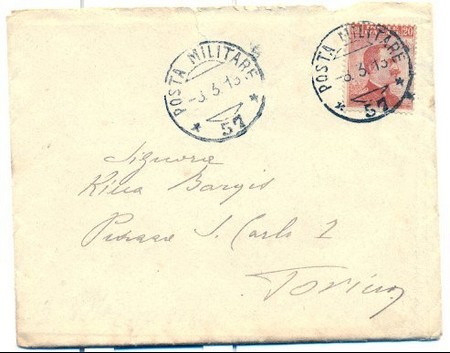 POSTA MILITARE
-3.3.15
* 57 *
POSTA MILITARE
-3.3.15
* 57 *
20
Signora
Rina Bargis
Piazza S. Carlo 2
Torino